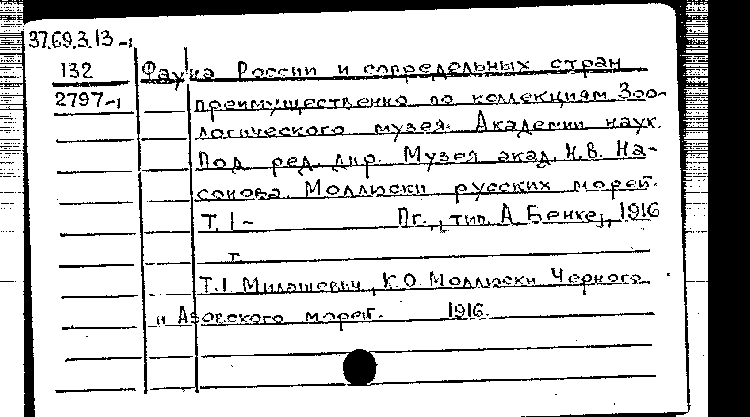 37.69.3.13-1
132 Фауна России и сопредельных стран
2797-1 преимущественно по коллекциям Зоо-
логического музея Академии наук.
Под ред. дир. Музея акад. Н.В. На-
сонова. Моллюски русских морей.
Т. 1- Пг., тип. А. Бенке, 1916
т.
Т.1 Милашевич, К.О. Моллюски Черного
и Азовского морей. 1916.